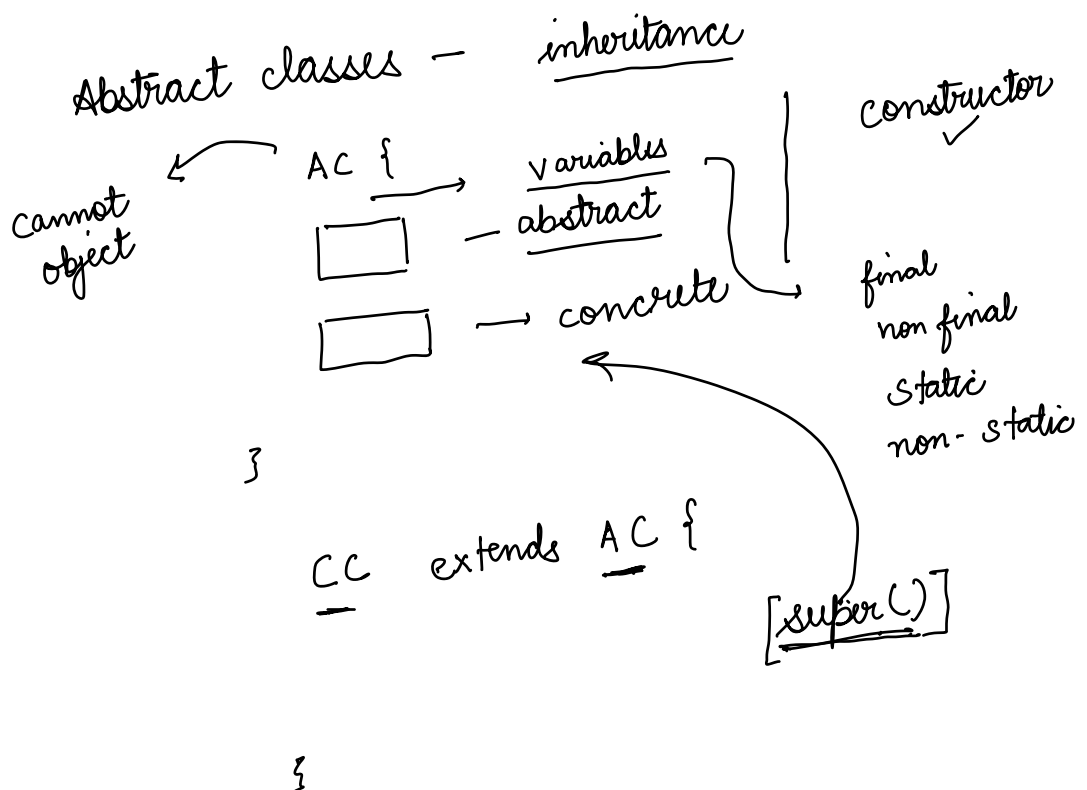 Abstract classes — inheritance
constructor
AC {
variables
cannot
object
— abstract
→ concrete
final
non final
static
non- static
}
CC extends AC {
[super()]
{